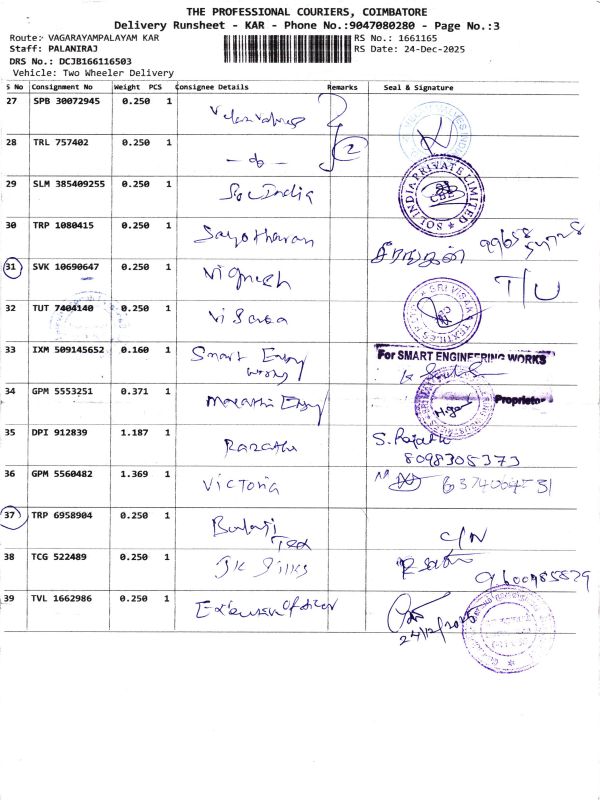 THE PROFESSIONAL COURIERS, COIMBATORE
Delivery Runsheet - KAR - Phone No.:9047080280 - Page No.:3
Route: VAGARAYAMPALAYAM KAR RS No.: 1661165
Staff: PALANIRAJ RS Date: 24-Dec-2025
DRS No.: DCJB166116503
Vehicle: Two Wheeler Delivery
S No Consignment No Weight PCS Consignee Details Remarks Seal & Signature
27 SPB 30072945 0.250 1
28 TRL 757402 0.250 1 - do - 2
29 SLM 385409255 0.250 1 Sol India SOL INDIA PRIVATE LIMITED CBE
30 TRP 1080415 0.250 1 99658
31 SVK 10690647 0.250 1 Vignesh T/U
32 TUT 7404140 0.250 1 SRI VISAKA TEXTILES
33 IXM 509145652 0.160 1 Smart Engg For SMART ENGINEERING WORKS
works
34 GPM 5553251 0.371 1 Marathi Engg Proprietor
35 DPI 912839 1.187 1
8098308373
36 GPM 5560482 1.369 1 Victoria
37 TRP 6958904 0.250 1 Balaji C/N
Tex
38 TCG 522489 0.250 1 JK Silks
9600985829
39 TVL 1662986 0.250 1
24/12/2025